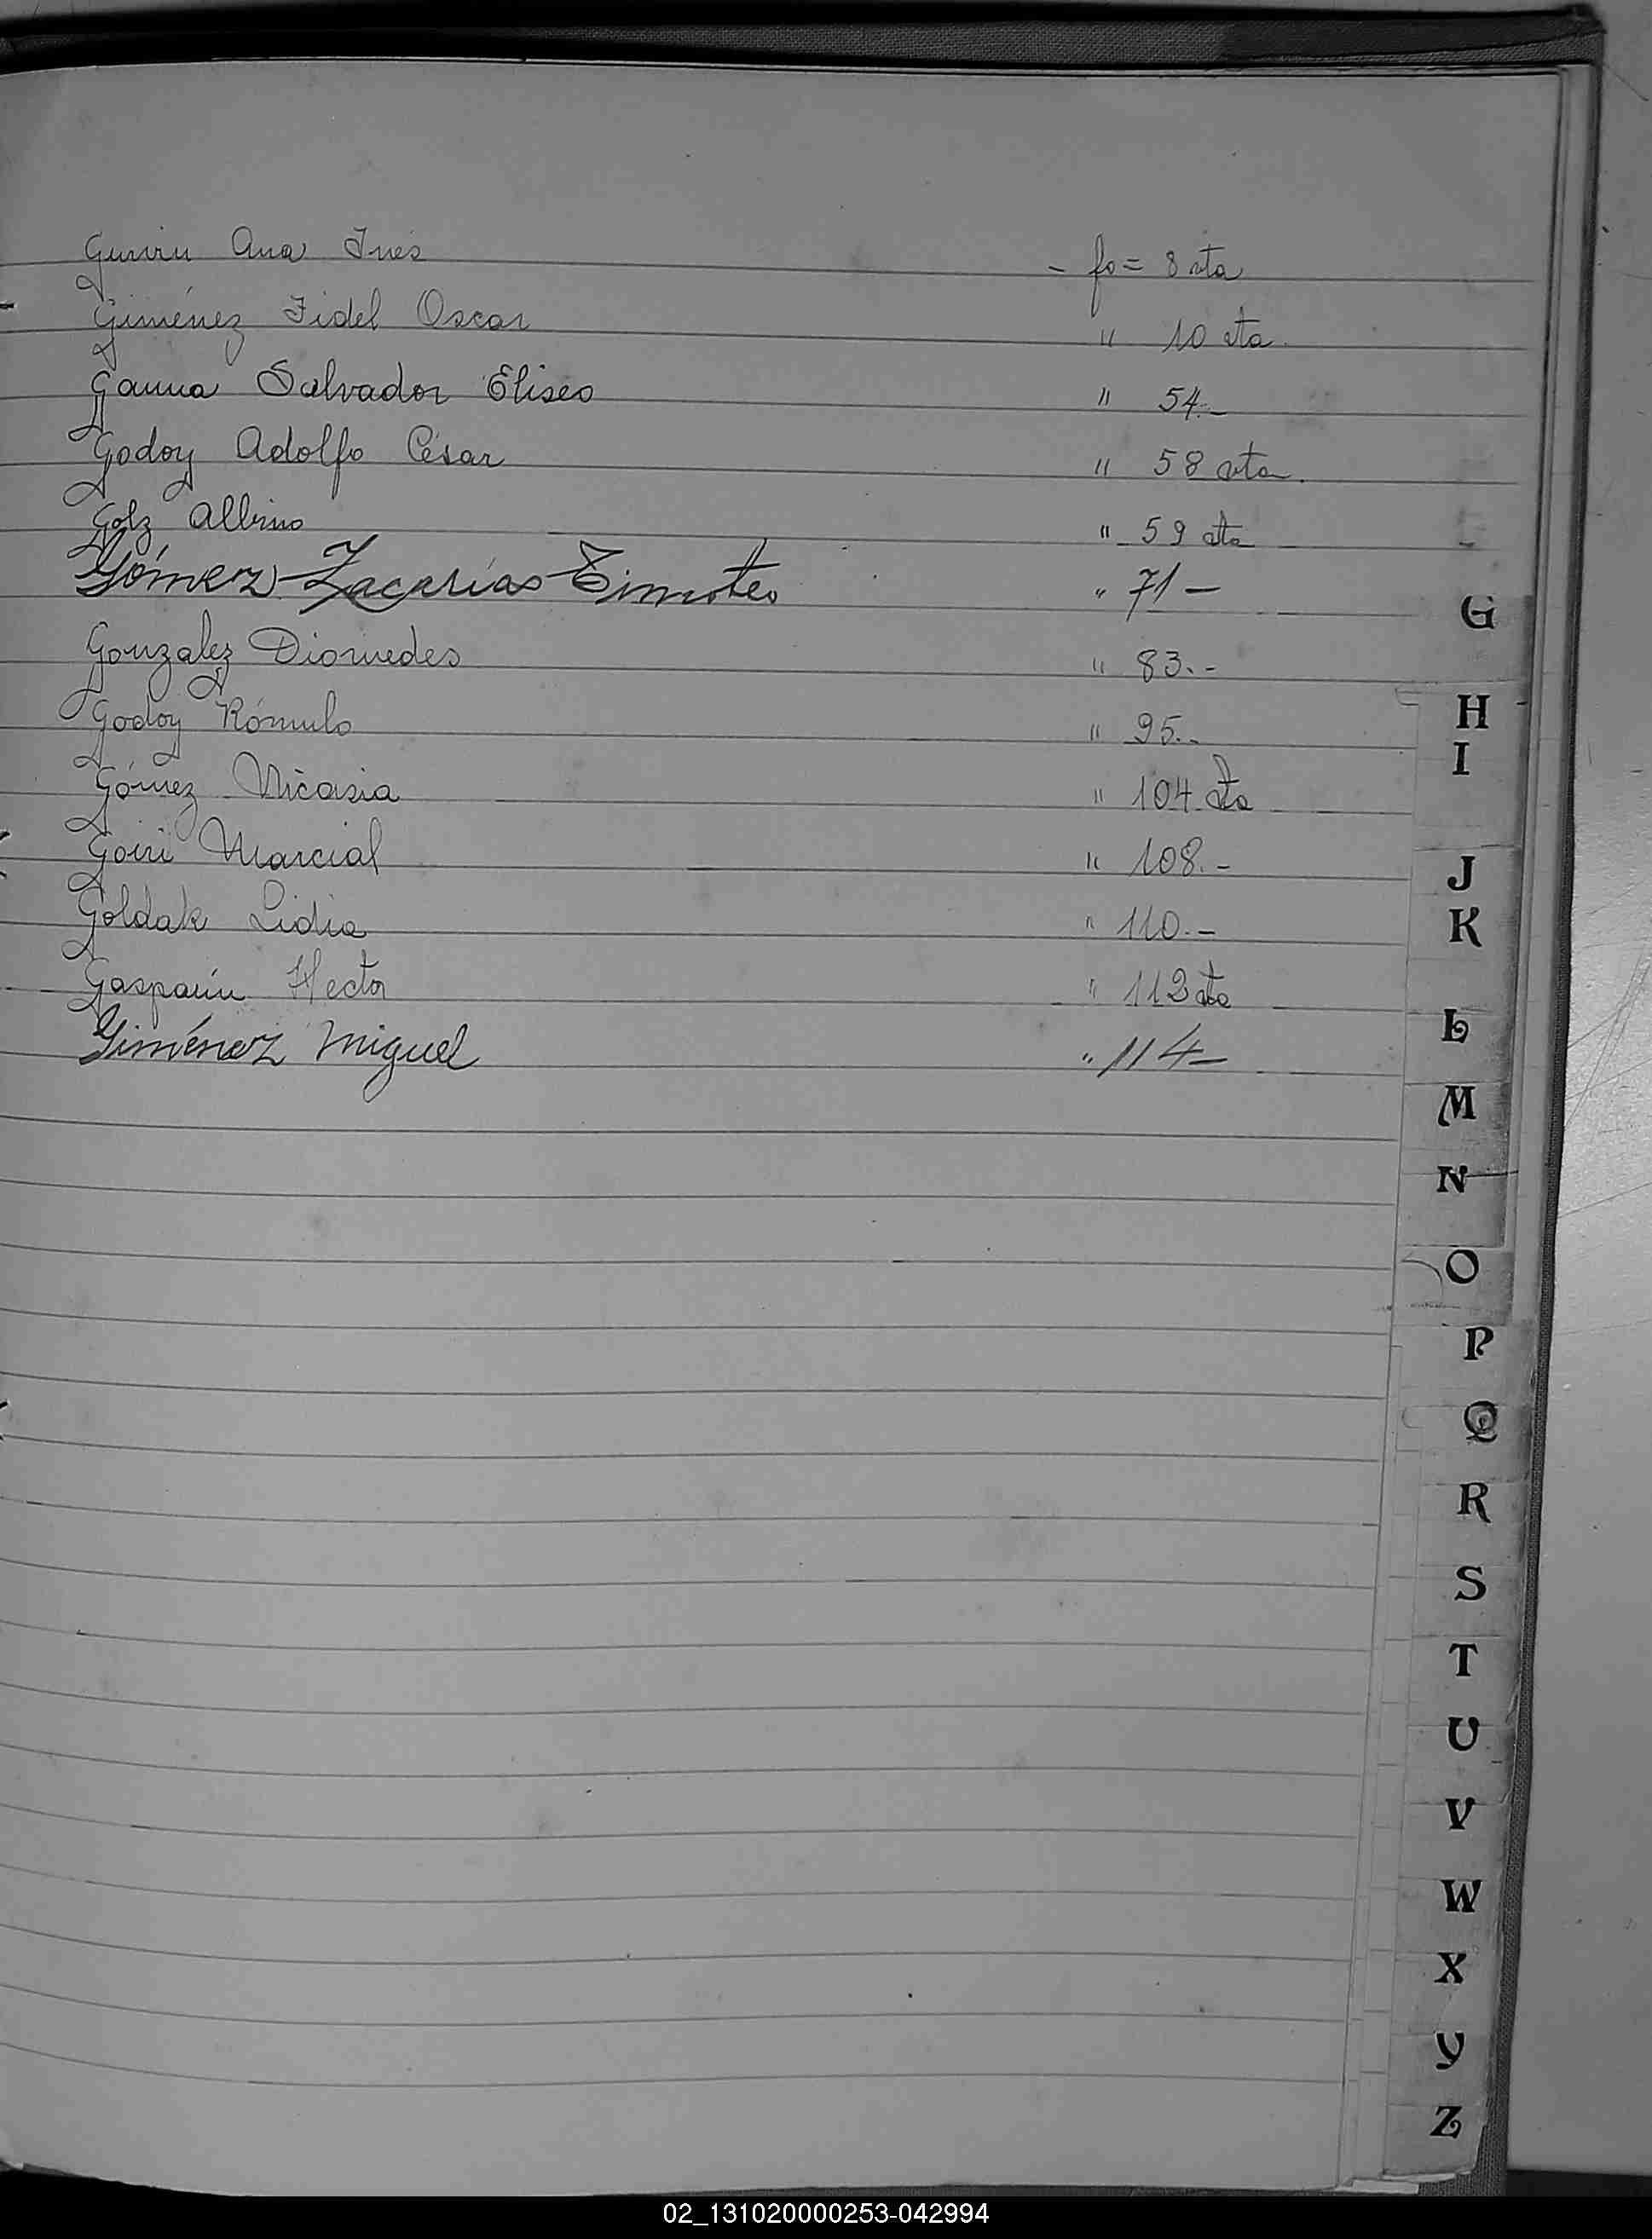 Ana Inés - fo = 8 vta
Giménez Fidel Oscar " 10 vta.
Gauna Salvador Eliseo " 54.-
Godoy Adolfo César " 58 vta.
Golz Albino " 59 vta
Gómez Zacarías Timoteo " 71 -
Gonzalez Diomedes " 83.-
Godoy Rómulo " 95.-
Gómez Nicasia " 104 vta
Goiri Marcial " 108.-
Goldak Lidia " 110.-
Gasparin Hector " vta
Giménez Miguel " 114-
G
H
I
J
K
L
M
N
O
P
Q
R
S
T
U
V
W
X
Y
Z
02_131020000253-042994